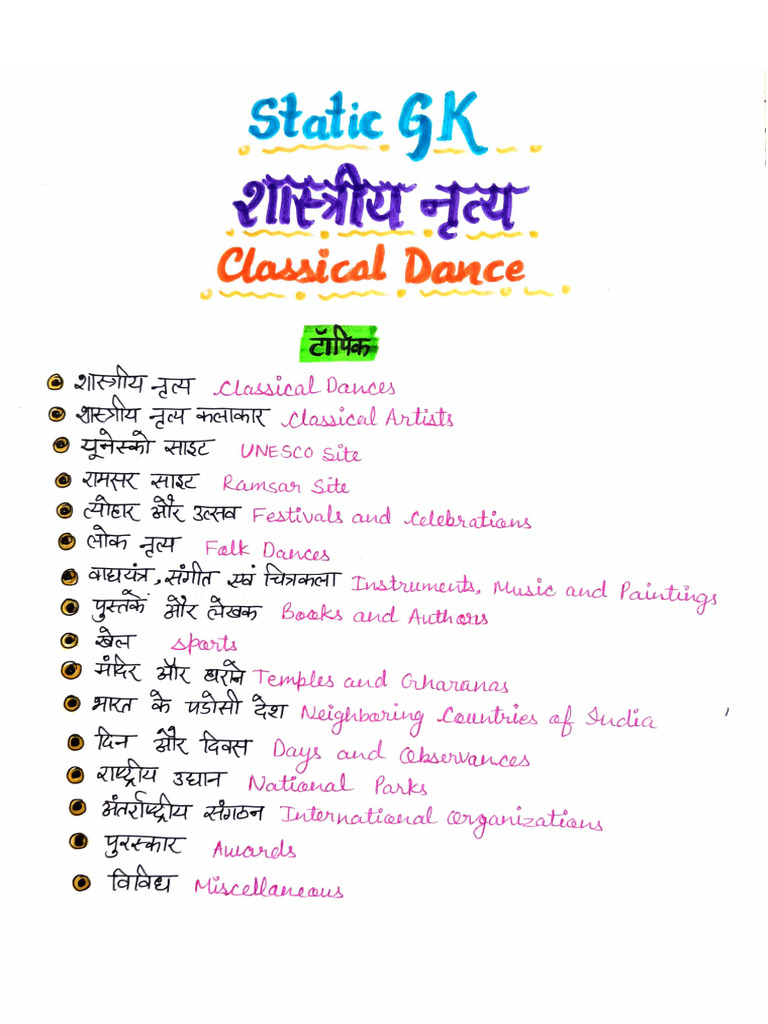 Static GK
शास्त्रीय नृत्य
Classical Dance
टॉपिक
शास्त्रीय नृत्य Classical Dances
शास्त्रीय नृत्य कलाकार Classical Artists
यूनेस्को साइट UNESCO Site
रामसर साइट Ramsar Site
त्योहार और उत्सव Festivals and Celebrations
लोक नृत्य Folk Dances
वाद्ययंत्र, संगीत एवं चित्रकला Instruments, Music and Paintings
पुस्तकें और लेखक Books and Authors
खेल Sports
मंदिर और घराने Temples and Gharanas
भारत के पडोसी देश Neighboring Countries of India
दिन और दिवस Days and Observances
राष्ट्रीय उद्यान National Parks
अंतर्राष्ट्रीय संगठन International Organizations
पुरस्कार Awards
विविध Miscellaneous